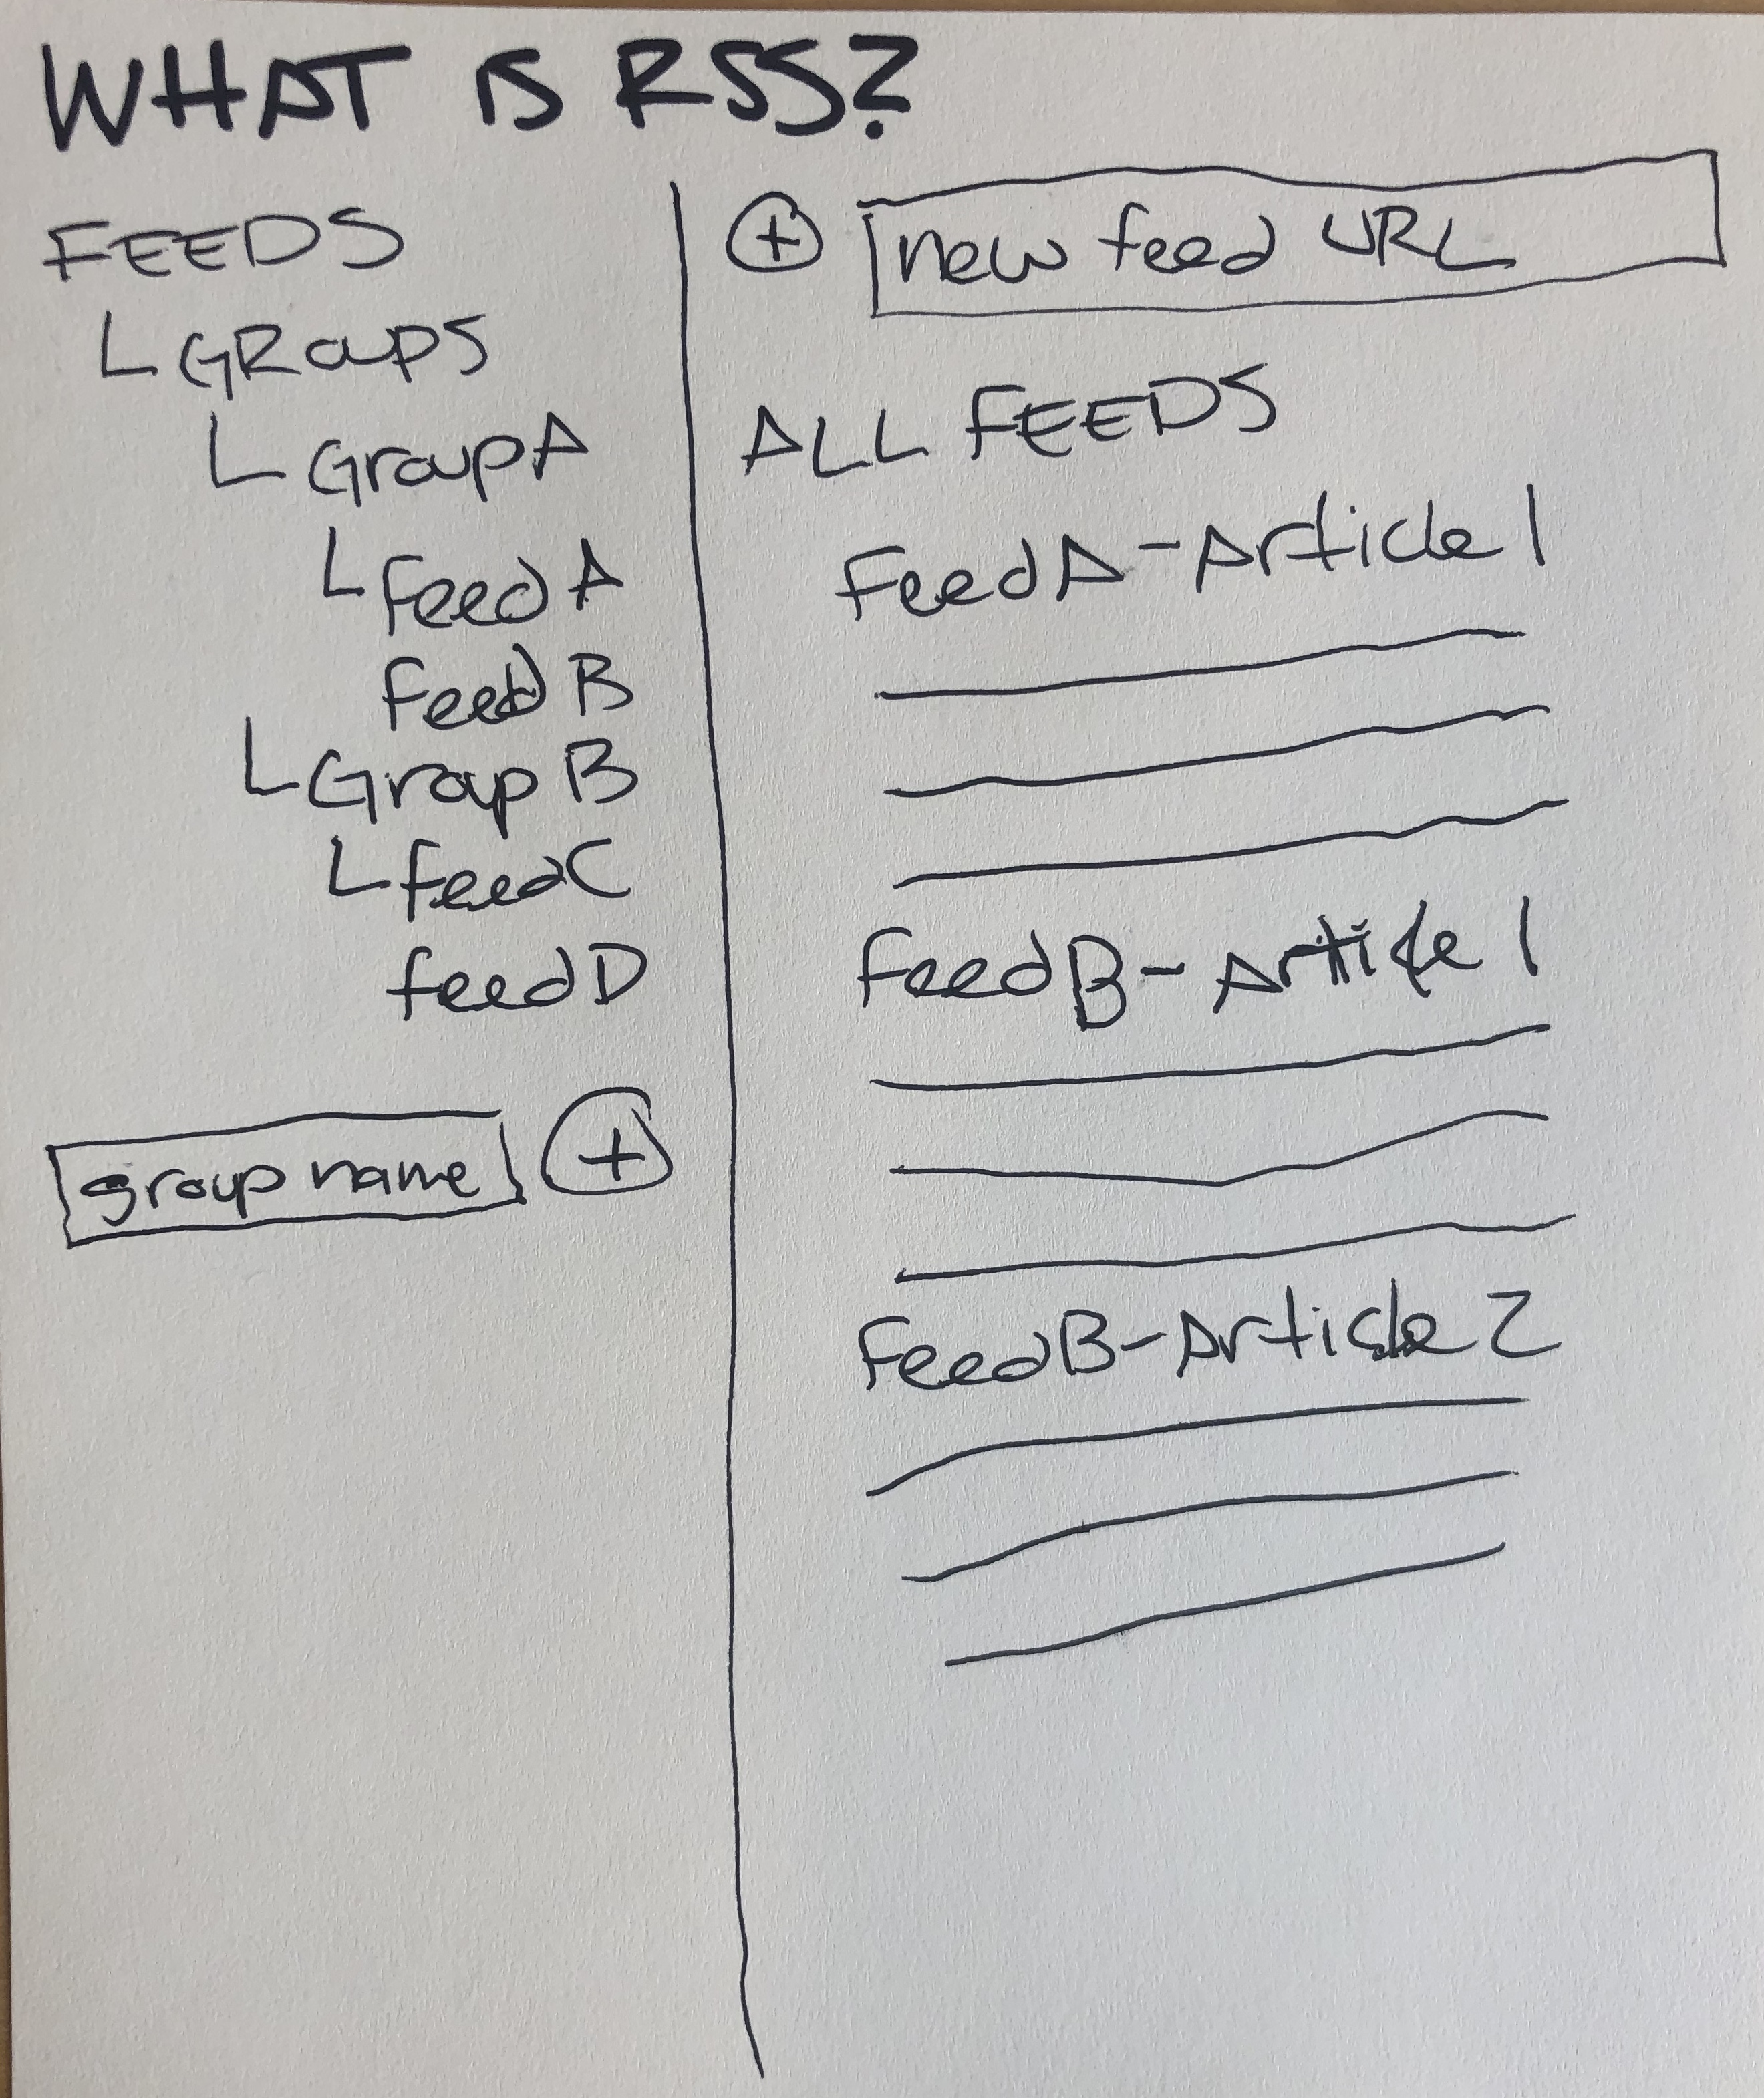 WHAT IS RSS?
FEEDS
GROUPS
Group A
feed A
feed B
Group B
feed C
feed D
group name +
+ new feed URL
ALL FEEDS
Feed A - Article 1
Feed B - Article 1
Feed B - Article 2